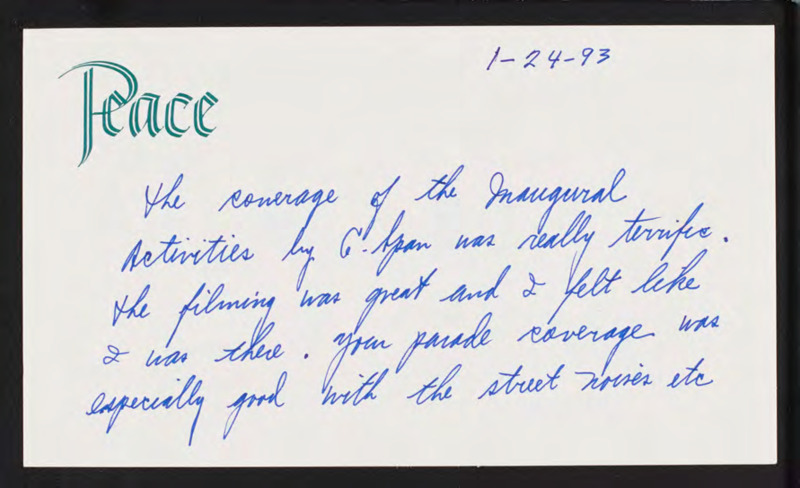 1-24-93
Peace
The coverage of the Inaugural
Activities by C-Span was really terrific.
The filming was great and I felt like
I was there. Your parade coverage was
especially good with the street noises etc